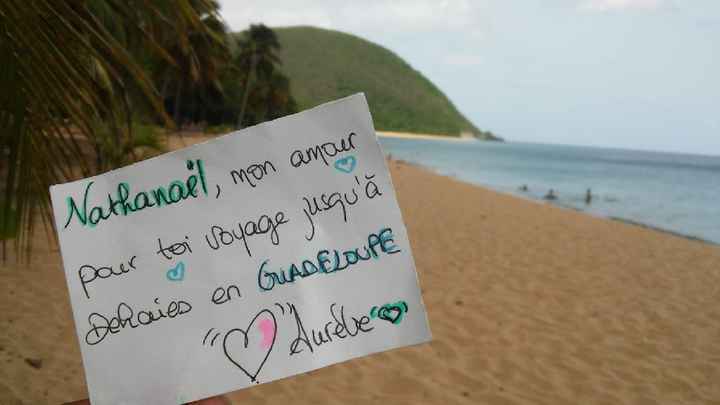 Nathanaël, mon amour
pour toi voyage jusqu'à
Dehaies en GUADELOUPE
"♡" Aurélie